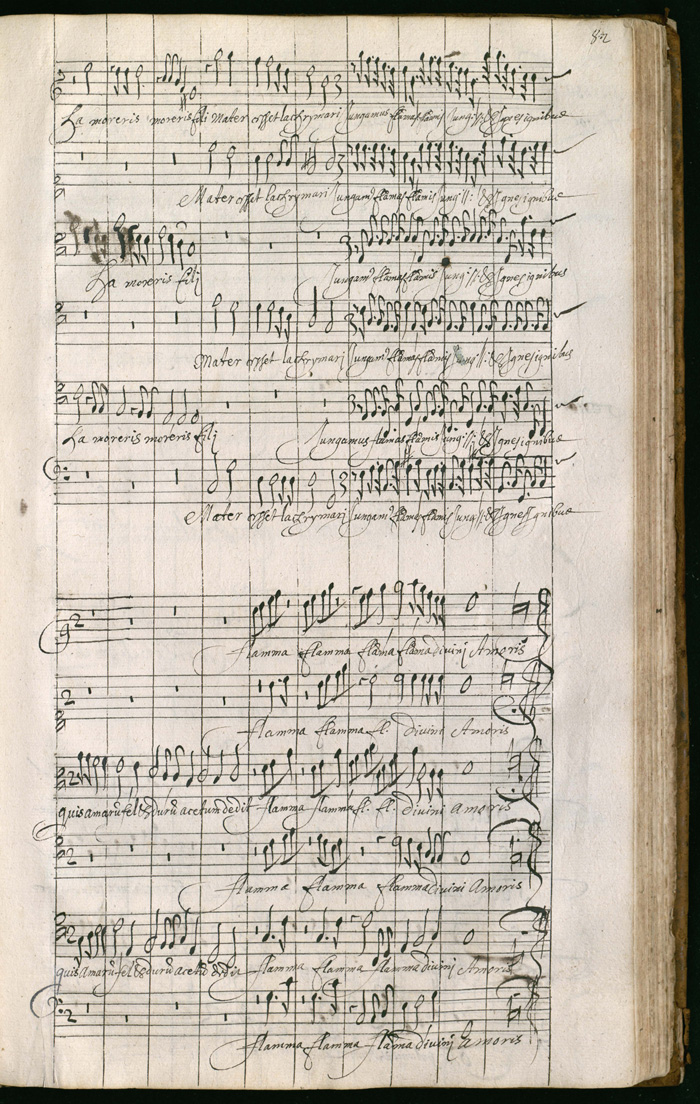 82
La moreris moreris fili Mater offet lachrymari Jungamus flamas flamis Jungs //: & Ignes ignibus
Mater offet lachrymari Jungamꝰ flamas flamis Jungꝰ //: & Ignes ignibus
La moreris filj
Jungamꝰ flamas flamis Jungꝰ //: & Ignes ignibus
Mater offet lachrymari Jungamꝰ flamas flamis Jungꝰ //: & Ignes ignibus
La moreris moreris filj
Jungamus flamas flamis Jungꝰ //: & Ignes ignibus
Mater offet lachrymari Jungamꝰ flamas flamis Jungꝰ //: & Ignes Ignibus
2
Flamma flamma flāma flāma divinj Amoris
2
Flamma flamma fl: divini Amoris
2
quis amarū fel & durū acetum dedit flamma flamma fl: fl: divini amoris
2
Flamma flamma flamma divini Amoris
2
quis amarū fel & durū acetū dedit flamma flamma flamma divinj Amoris
2
Flamma flamma flāma divinj Amoris